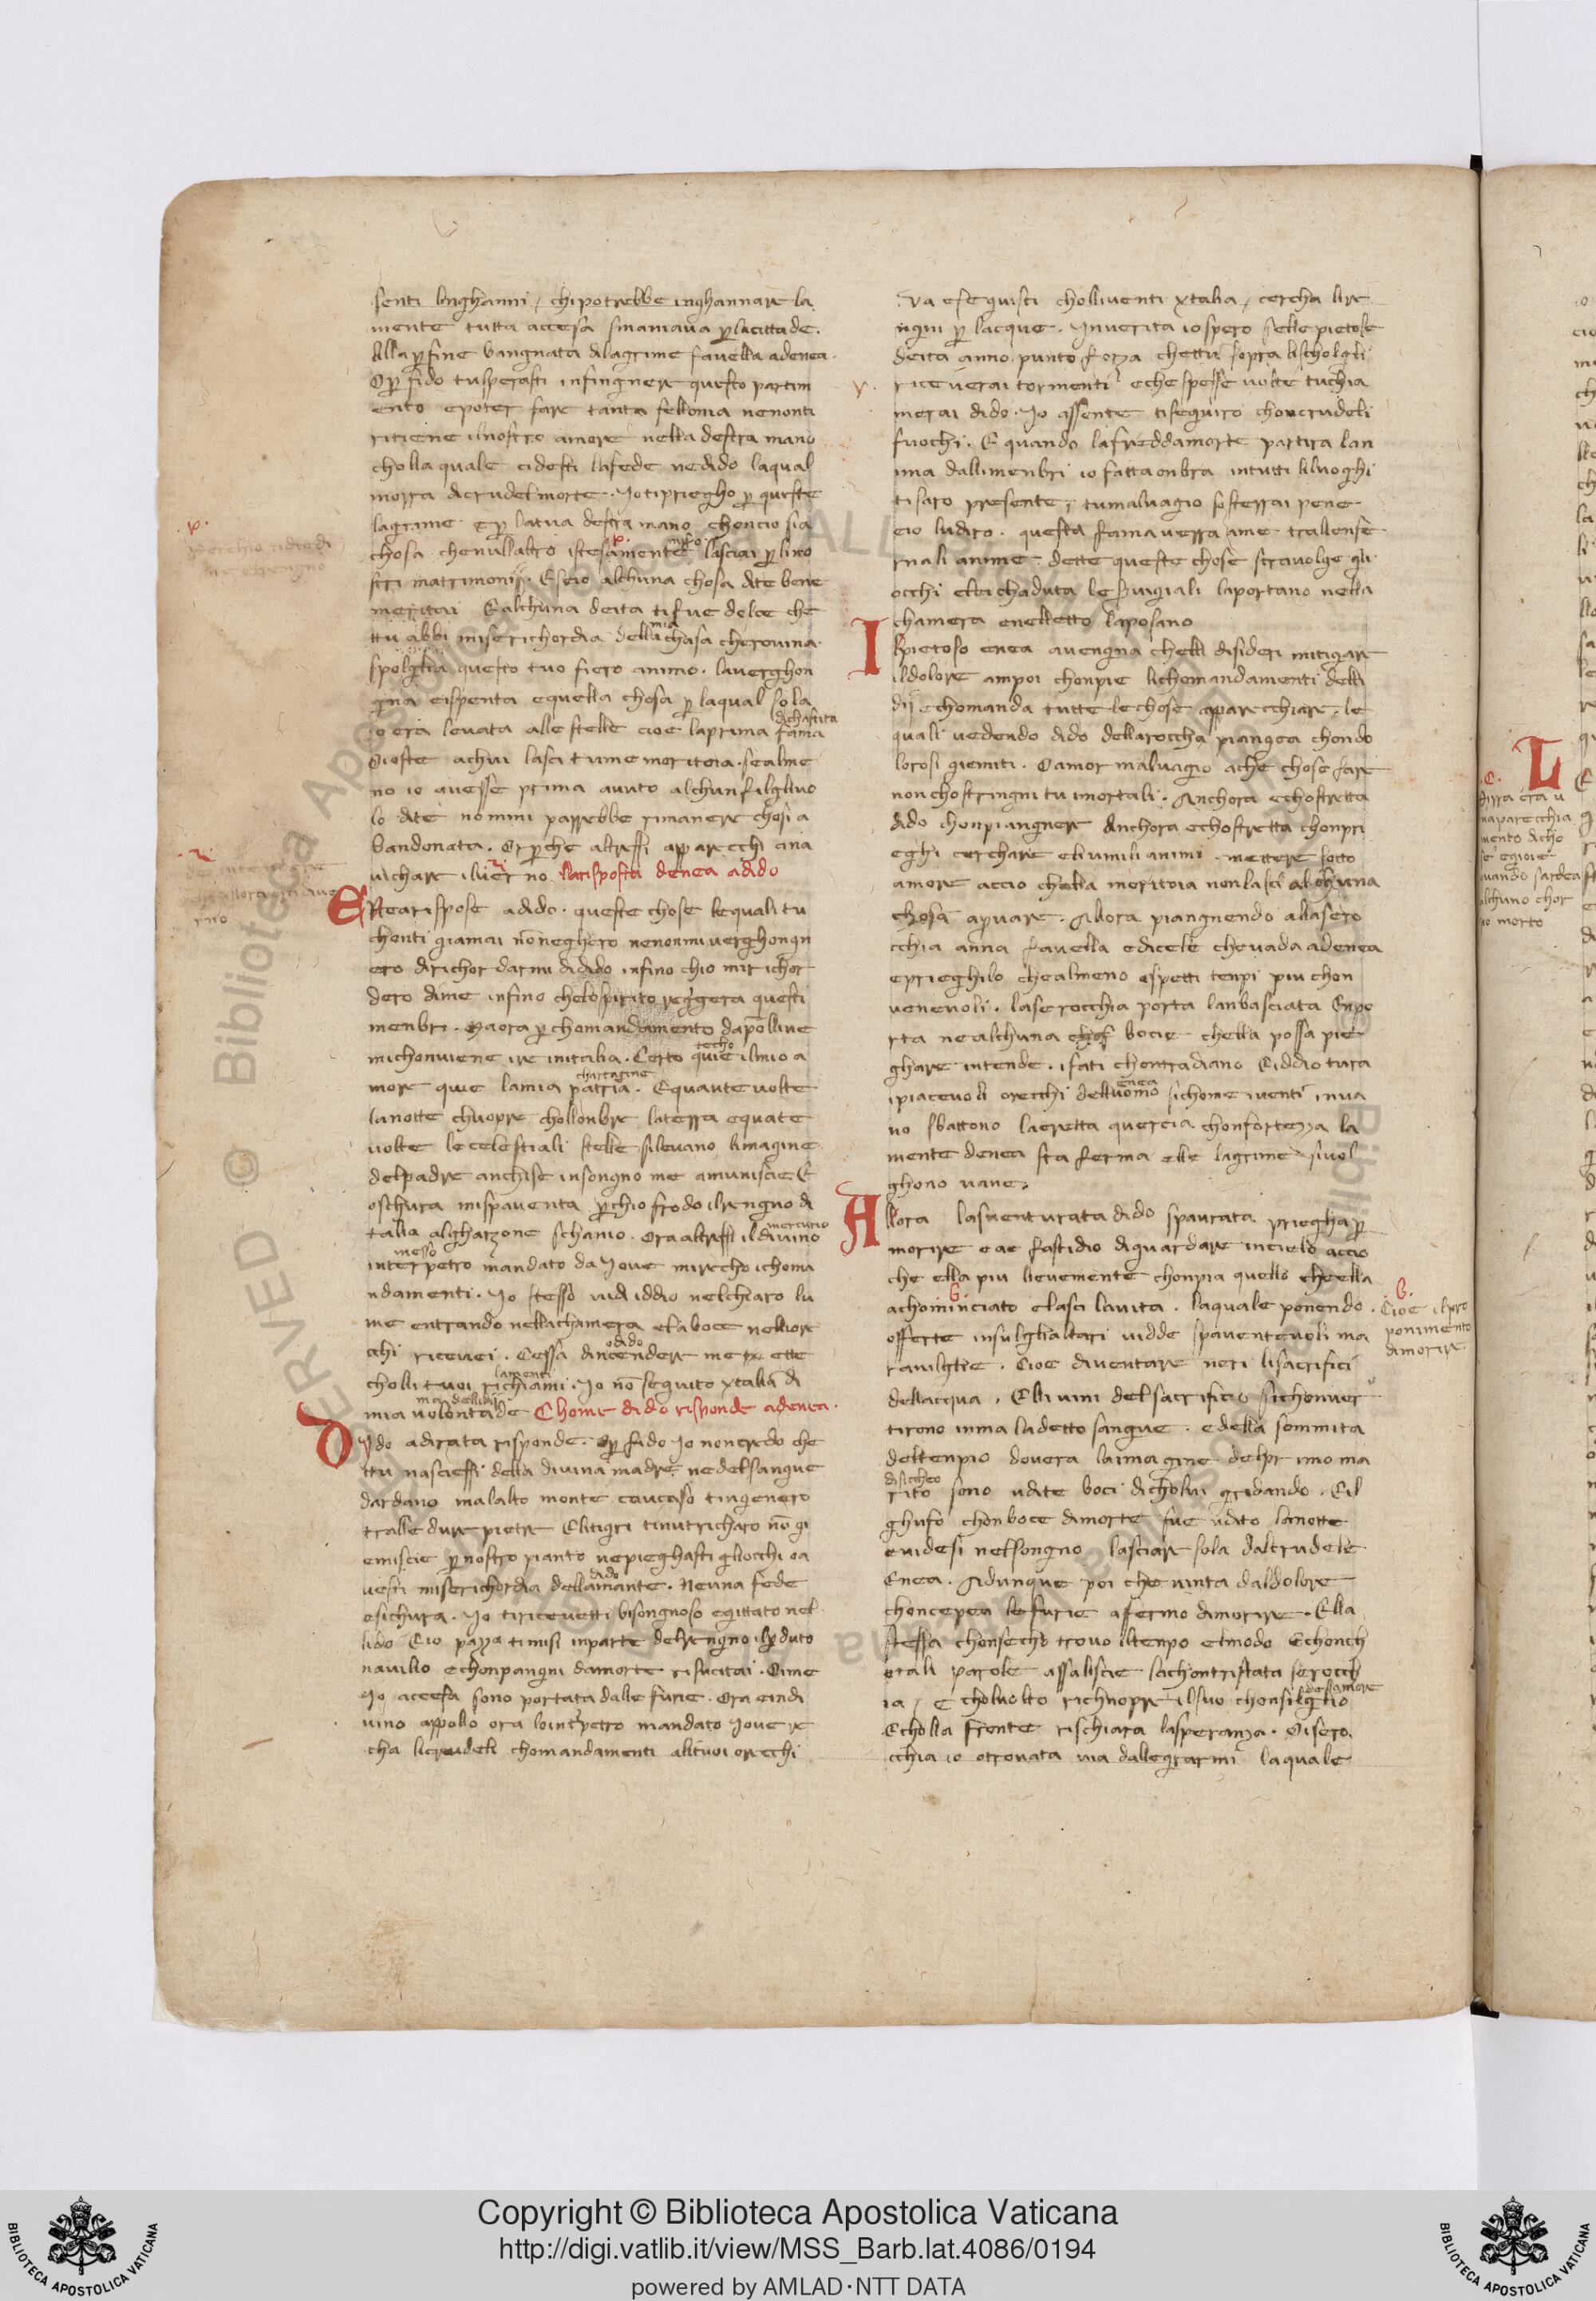 senti linghanni / chi potrebbe inghannare la
mente tutta accesa smaniava per lacittade.
Alla perfine vangnata dilagrime favella adenea.
O perfido tu sperasti infingnere questo partim
ento epoter fare tanta fellonia nenonti
ritiene ilnostro amore nella destra mano
cholla quale cidesti lafede nedido laqual
morra dicrudel morte. Io tipriegho per queste
lagrime e per latua destra mano chencio sia
chosa chenullaltro istesamente lasciai per lino
stri matrimonii. E seio alchuna chosa dite bene
meritai E alchuna deita tifue dolce che
ttu abbi miserichordia della mia chasa cherovina.
spolglia questo tuo fiero animo. laverghon
gna eispenta equella chosa per laqual sola
io era levata alle stelle cioe laprima fama dichastita
O oste achui lasci tume moritoia. sealme
no io avesse prima avuto alchun filgliuo
lo dite nommi parrebbe rimanere chosi a
bandonata. Or perche altressi apparecchi ana
vichare iluerno larisposta denea adido
Enearispose adido. queste chose lequali tu
chonti giamai non neghero nenonmi verghongn
ero dirichordarmi didido infino chio mirichor
dero dime infino chelospirito reggera questi
menbri. Maora per chomandamento dapolline
michonviene ire initalia. Certo quie ilmio a techo
more quie lamia patria. Equantevolte chartagine
lanotte chuopre chollonbre laterra equate
volte lecelestiali stelle silevano limagine
delpadre anchise insongno me amunisce E
oschura mispaventa perchio frodo ilrengno di
talia algharzone schanio. Ora altressi ildivino mercurio
messo
interpetro mandato da Iove mirecho ichoma
ndamenti. Io stesso vidi iddio nelchiaro lu
me entrando nellachamera elaboce nelliore
cchi ricevei. Cessa dincendere me ette odido
cholli tuoi richiami. Io non seguito ytalia di lamenti
mia volontade Chome dido risponde adenea. ma delliddii
Dido adirata risponde. O perfido Io noncredo che
ttu nasciessi della divina madre nedelsangue
dardano malalto monte caucaso tingenero
tralle dure pietre Elitigri tinutricharo non gi
emiscie per nostro pianto nepieghasti gliocchi oa
vesti miserichordia dellamante. Neuna fede dido
esichura. Io tiricevetti bisongnoso egittato nel
lido Eio pazza timisi inparte delrengno ilperduto
navilio echonpangni damorte risucitai. Oime
Io accesa sono portata dalle furie. Ora eindi
vino appollo ora lointerpetro mandato Iove re
cha licrudeli chomandamenti alituoi orecchi
Va eseguisci cholliventi ytalia / cercha lire
ngni per lacque. Inverita io spero selle pietose
deita anno punto forza chettu sopra lischolgli
riceverai tormenti eche spesse volte tuchia
merai dido. Io assente tiseguiro choncrudeli
fuochi. E quando lafreddamorte partira lan
ima dallimenbri io fatta onbra intutti liluoghi
tisaro presente, tumalvagio sosterrai pene
eio ludiro. questa fama verra ame trallenfe
rnali anime. dette queste chose stravolge gli
occhi ettichaduta leservigiali laportano nella
chamera enelletto laposano
Ilpietoso enea avengna chelli disideri mitigare
ildolore ampoi chonpie lichomandamenti delli
dii echomanda tutte lechose apparecchiare. le
quali vedendo dido dellaroccha piangea chondo
lorosi giemiti. O amor malvagio ache chose fare
non chostringni tu imortali. Anchora echostretta
dido chonpiangnere Anchora echostretta chonpri
eghi cerchare elumili animi mettere sotto
amore accio chella moritoia nonlasci alchuna
chosa aprovare. Allora piangnendo allasero
cchia anna favella edicele chevada adenea
eprieghilo chealmeno aspetti tenpi piu chon
venevoli. laserocchia porta lanbasciata Enpo
rta nealchuna boci chella possa pie
ghare intende. ifati chontradiano Eiddio tura
ipiacevoli orecchi delluomo sichome iventi inva enea
no sbattono laeretta quercia chonfortezza la
mente denea sta ferma elle lagrime sivol
ghono vane.
Allora lasventurata dido spaurata priegha per
morire eae fastidio diguardare incielo accio
che ella piu lievemente chonpia quello cheella
achominciato elasci lavita. laquale ponendo
offerte insulglialtari vidde spaventevoli ma
ravilglie. Cioe diventare neri lisacrifici
dellacqua. Elli vini delsacrificio sichonver
tirono inma ladetto sangue. edella sommita
deltenpio dovera laimagine delpr imo ma
disiccheo
rito sono udite boci dicholui gridando. Eil
ghufo chonboce dimorte fue udito lanotte
evidesi nelsongno lasciare sola dalcrudele
Enea. Adunque poi che vinta daldolore
choncepea lefurie afermo dimorire. Ella
stessa chonsecho trovo iltenpo elmodo Echonch
otali parole assaliscie lachontristata serocch
ia / E cholvolto richuopre ilsuo chonsilglio dessamore
Echolla fronte rischiara lasperanza. O sero
cchia io otrovata via dallegrarmi laquale
.b.
Cioe ilpro
ponimento
dimorire
.c.
L
Copyright © Biblioteca Apostolica Vaticana
http://digi.vatlib.it/view/MSS_Barb.lat.4086/0194
powered by AMLAD·NTT DATA
BIBLIOTECA APOSTOLICA VATICANA
BIBLIOTECA APOSTOLICA VATICANA